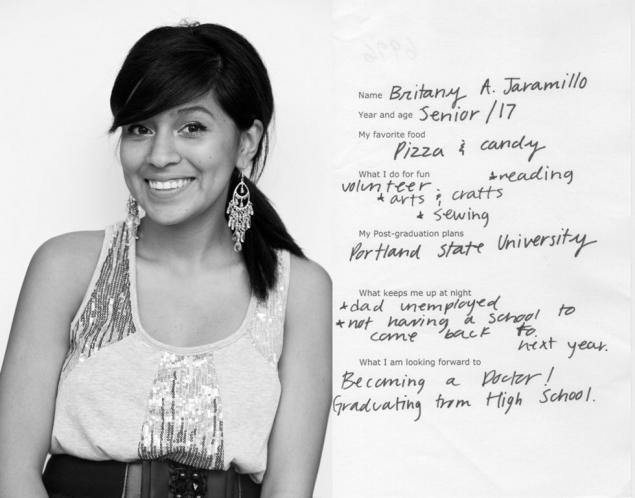 Name Britany A. Jaramillo
Year and age Senior /17
My favorite food
Pizza & candy
What I do for fun *reading
volunteer
* arts & crafts
* sewing
My Post-graduation plans
Portland State University
What keeps me up at night
*dad unemployed
*not having a school to
come back to
next year.
What I am looking forward to
Becoming a Doctor!
Graduating from High School.